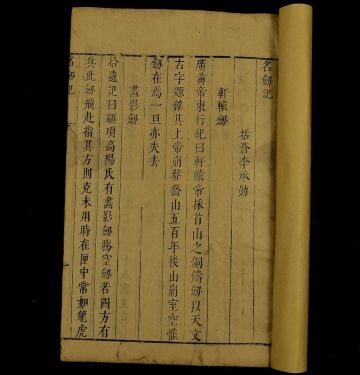 名劍記
括蒼李承勛
軒轅劍
廣黃帝東行紀曰軒轅帝採首山之銅鑄劍以天文
古字題銘其上帝崩葬喬山五百年後山崩室空惟
劍在焉一旦亦失去
畫影劍
拾遺記曰顓頊高陽氏有畫影劍騰空劍若四方有
兵此劍飛赴指其方則克未用時在匣中常如龍虎
名劍記